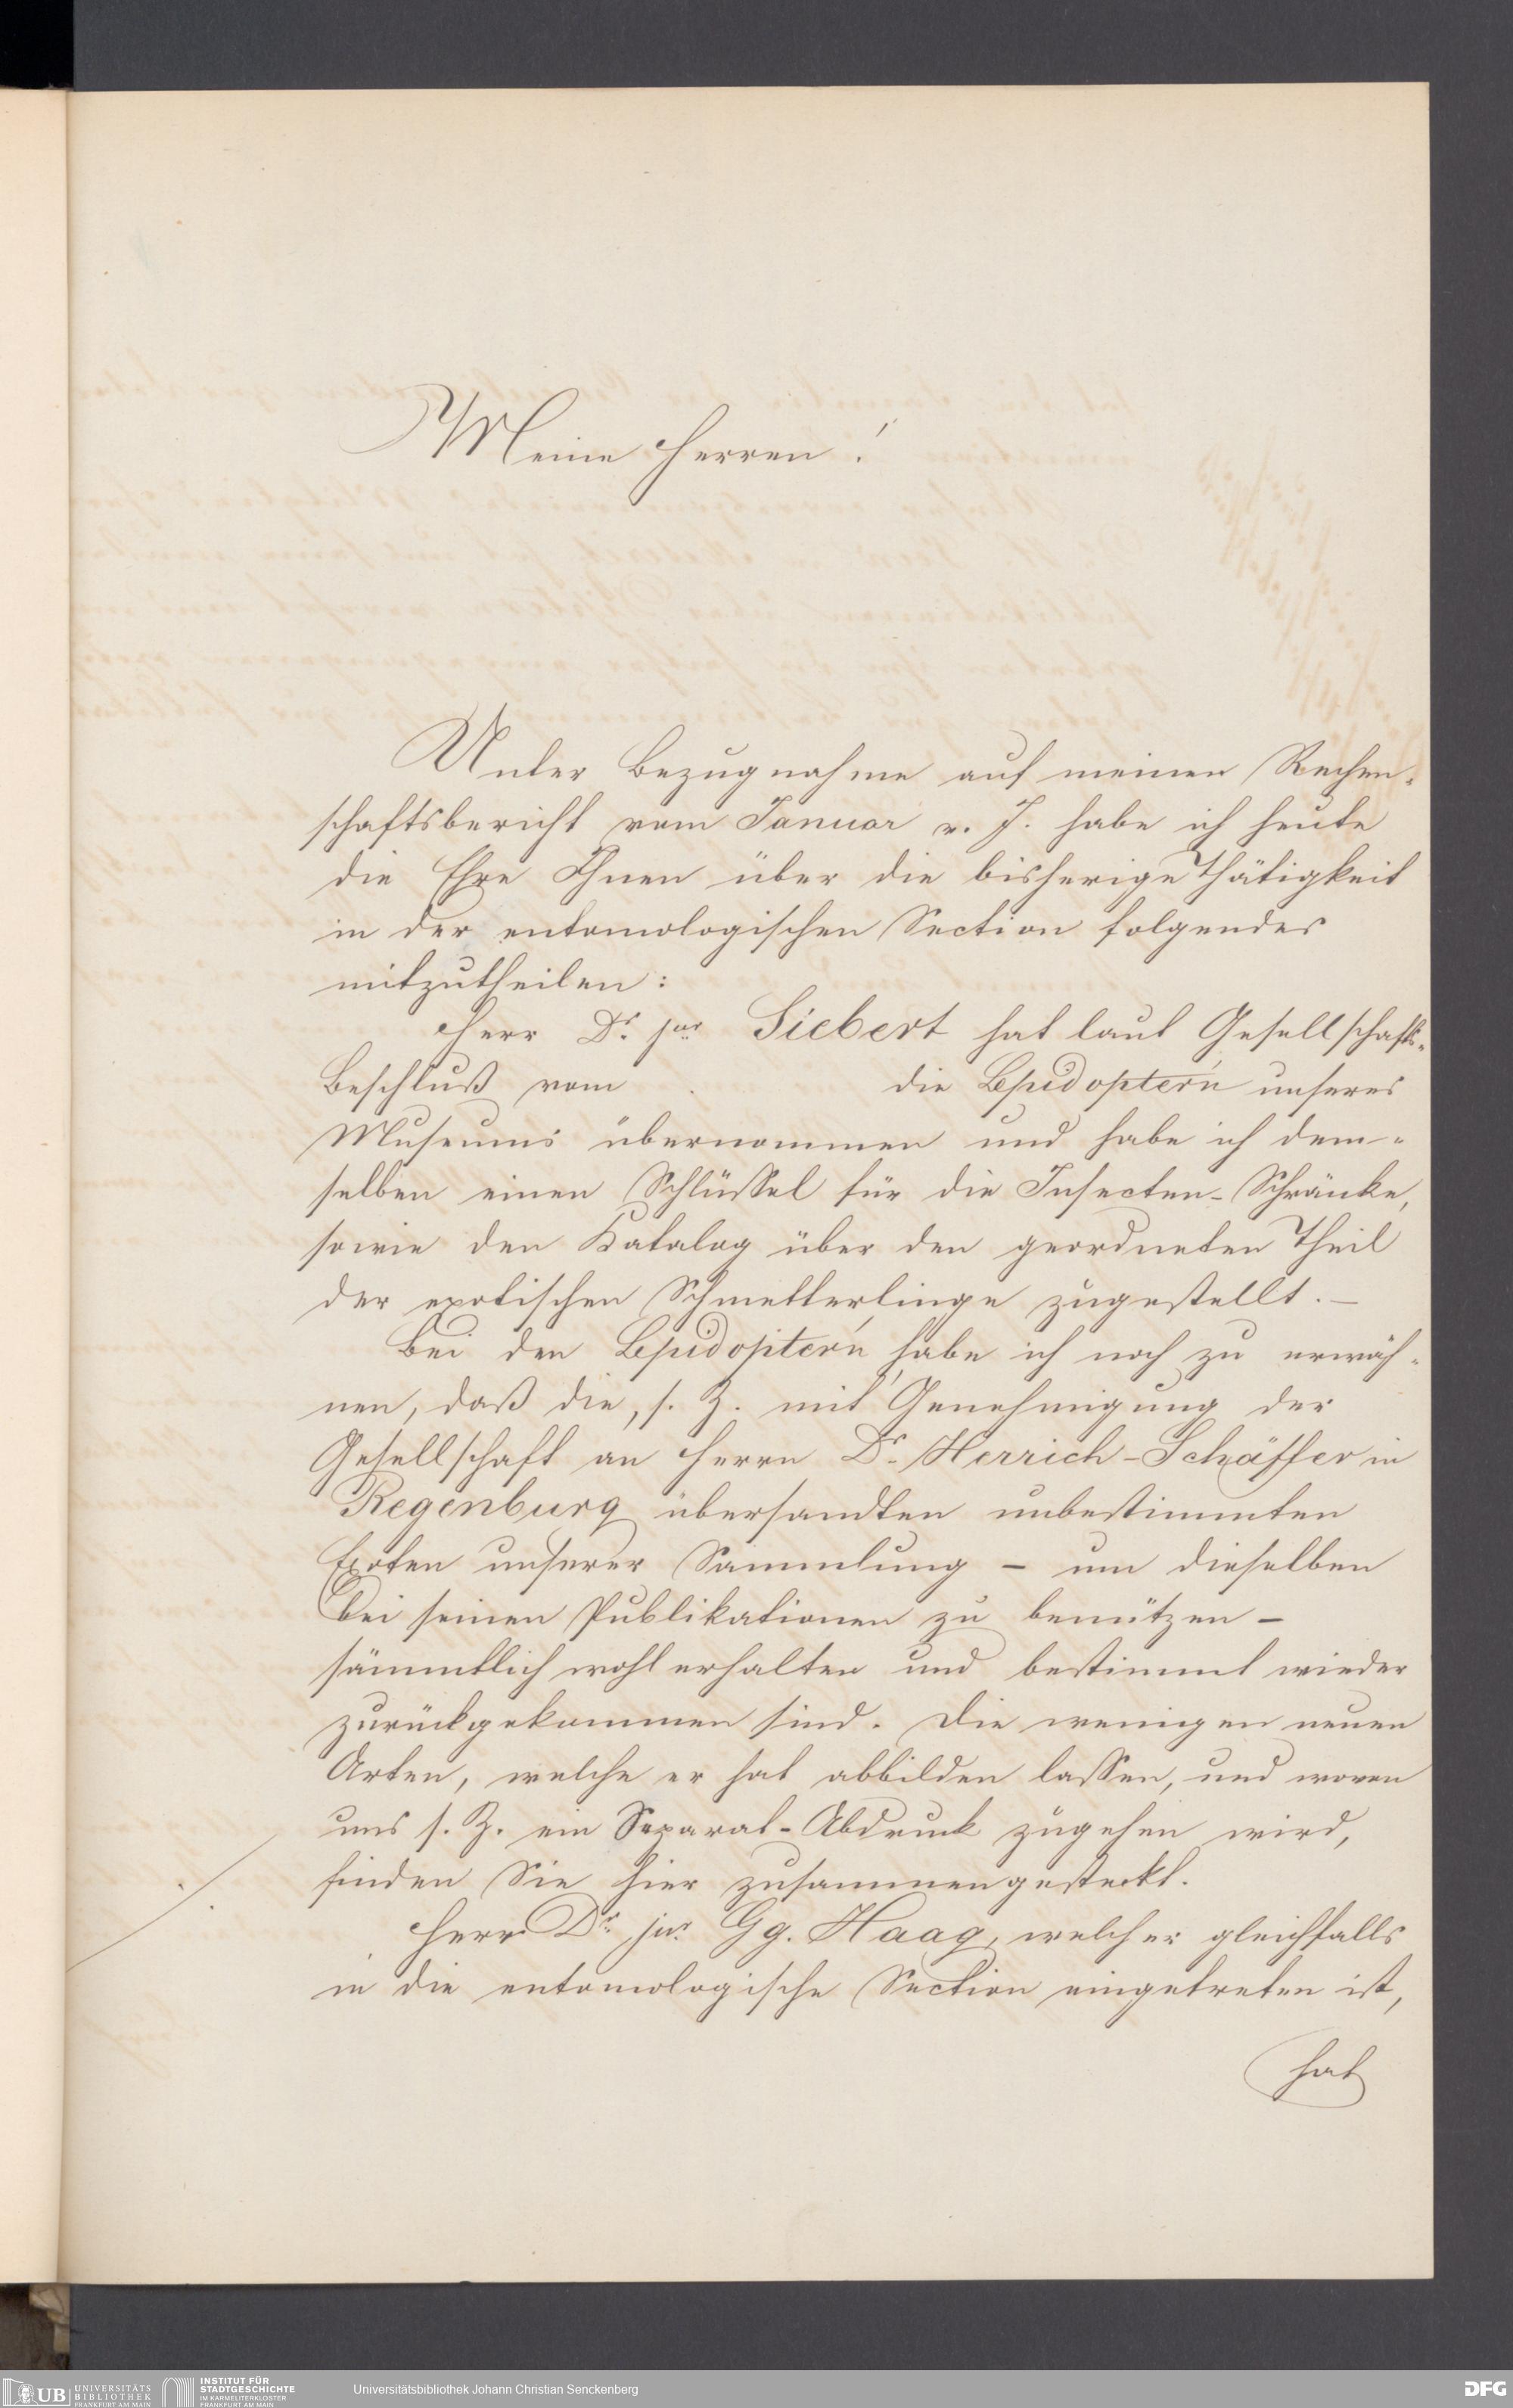 Meine Herren!
Unter Bezugnahme auf meinen Rechen-
schaftsbericht vom Januar v. J. habe ich heute
die Ehre Ihnen über die bisherige Thätigkeit
in der entomologischen Section folgendes
mitzutheilen:
Herr Dr. jur. Siebert hat laut Gesellschafts-
Beschluß vom die Lepidoptern unseres
Museums übernommen und habe ich dem-
selben einen Schlüssel für die Insecten-Schränke,
sowie den Katalog über den geordneten Theil
der exotischen Schmetterlinge zugestellt. —
Bei den Lepidoptern habe ich noch zu erwäh-
nen, daß die, s. Z. mit Genehmigung der
Gesellschaft an Herrn Dr. Herrich-Schäffer in
Regenburg übersandten unbestimmten
Exoten unserer Sammlung – um dieselben
bei seinen Publikationen zu benützen –
sämmtlich wohl erhalten und bestimmt wieder
zurückgekommen sind. Die wenigen neuen
Arten, welche er hat abbilden lassen, und wovon
uns s. Z. ein Separat-Abdruck zugehen wird,
finden Sie hier zusammengesteckt.
Herr Dr. jur. Gg. Haag, welcher gleichfalls
in die entomologische Section eingetreten ist,
hat
UB UNIVERSITÄTS BIBLIOTHEK FRANKFURT AM MAIN
INSTITUT FÜR STADTGESCHICHTE IM KARMELITERKLOSTER FRANKFURT AM MAIN
Universitätsbibliothek Johann Christian Senckenberg
DFG